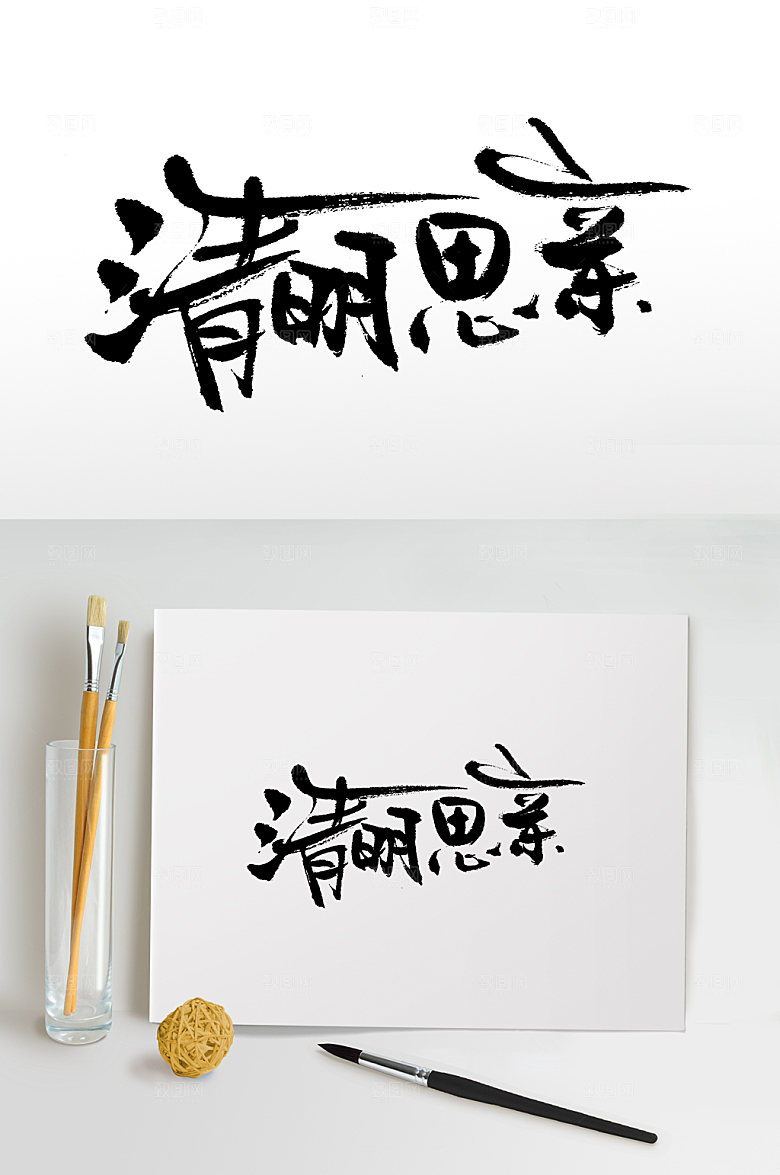 清明思亲
清明思亲